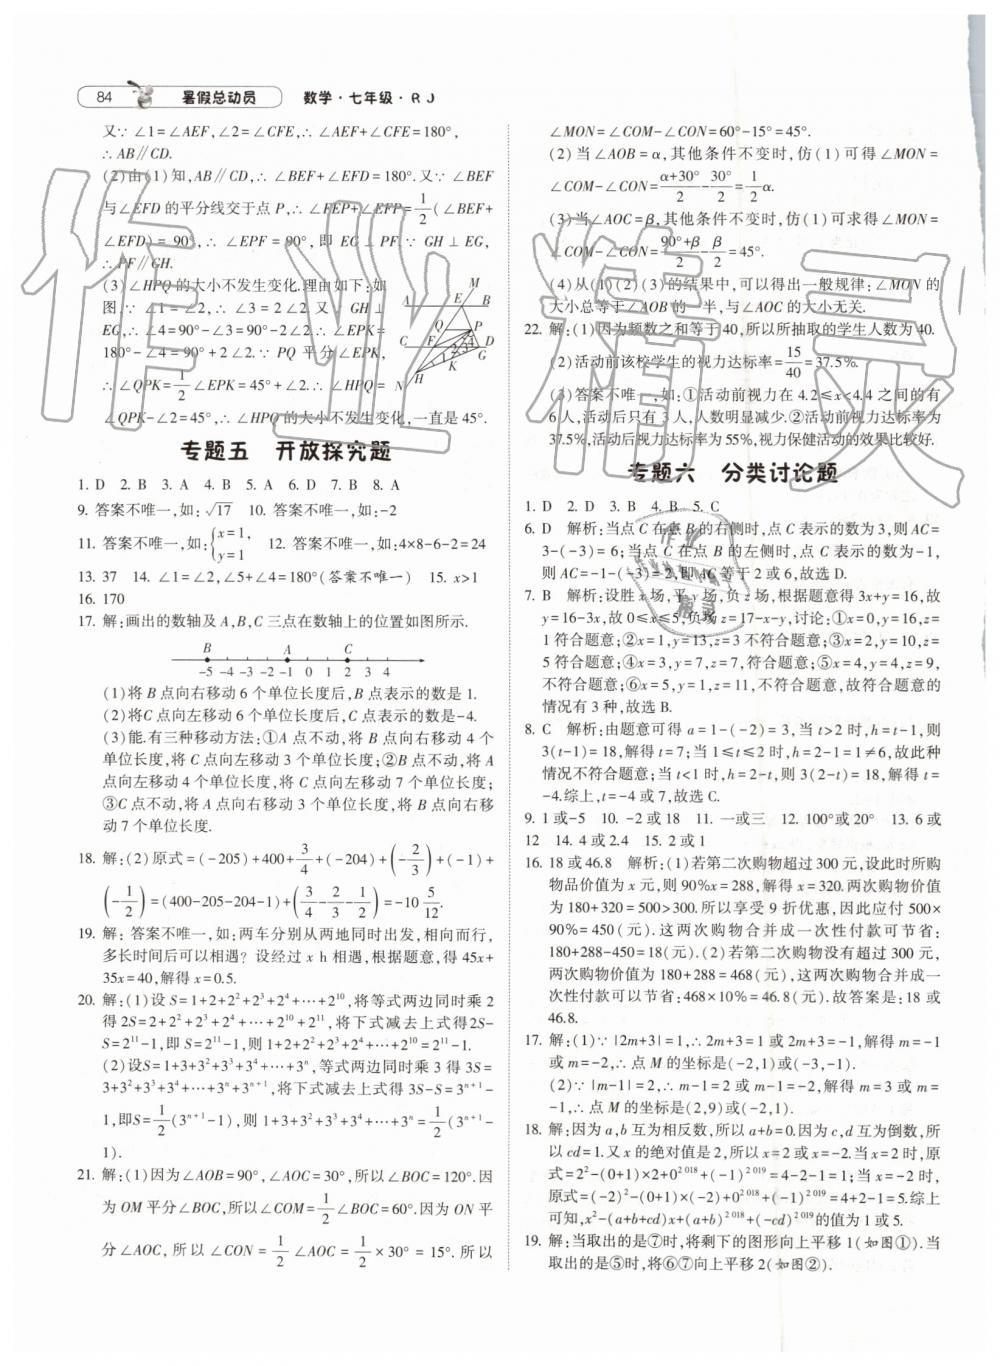 84 暑假总动员 数学·七年级·RJ
又∵∠1=∠AEF,∠2=∠CFE,∴∠AEF+∠CFE=180°,
∴AB∥CD.
(2)由(1)知,AB∥CD,∴∠BEF+∠EFD=180°.又∵∠BEF
与∠EFD的平分线交于点P,∴∠FEP+∠EFP=1/2(∠BEF+
∠EFD)=90°,∴∠EPF=90°,即EG⊥PF.∵GH⊥EG,
∴PF∥GH.
(3)∠HPQ的大小不发生变化.理由如下:如
图.∵∠1=∠2,∴∠3=2∠2.又∵GH⊥
EG,∴∠4=90°-∠3=90°-2∠2.∴∠EPK=
180°-∠4=90°+2∠2.∵PQ平分∠EPK,
∴∠QPK=1/2∠EPK=45°+∠2.∴∠HPQ=
∠QPK-∠2=45°,∴∠HPQ的大小不发生变化,一直是45°.
M
A E B
Q P
C F D
G
1 2 3 4
K
H
N
专题五 开放探究题
1. D 2. B 3. A 4. B 5. A 6. D 7. B 8. A
9. 答案不唯一,如:√17 10. 答案不唯一,如:-2
11. 答案不唯一,如:{x=1, y=1 12. 答案不唯一,如:4×8-6-2=24
13. 37 14. ∠1=∠2,∠5+∠4=180°(答案不唯一) 15. x>1
16. 170
17. 解:画出的数轴及A,B,C三点在数轴上的位置如图所示.
B A C
-5 -4 -3 -2 -1 0 1 2 3 4
(1)将B点向右移动6个单位长度后,B点表示的数是1.
(2)将C点向左移动6个单位长度后,C点表示的数是-4.
(3)能.有三种移动方法:①A点不动,将B点向右移动4个
单位长度,将C点向左移动3个单位长度;②B点不动,将A
点向左移动4个单位长度,将C点向左移动7个单位长度;
③C点不动,将A点向右移动3个单位长度,将B点向右移
动7个单位长度.
18. 解:(2)原式=(-205)+400+3/4+(-204)+(-2/3)+(-1)+
(-1/2)=(400-205-204-1)+(3/4-2/3-1/2)=-10 5/12.
19. 解:答案不唯一,如:两车分别从两地同时出发,相向而行,
多长时间后可以相遇?设经过x h相遇,根据题意,得45x+
35x=40,解得x=0.5.
20. 解:(1)设S=1+2+2²+2³+2⁴+…+2¹⁰,将等式两边同时乘2
得2S=2+2²+2³+2⁴+…+2¹⁰+2¹¹,将下式减去上式得2S-
S=2¹¹-1,即S=2¹¹-1,则1+2+2²+2³+2⁴+…+2¹⁰=2¹¹-1.
(2)设S=1+3+3²+3³+3⁴+…+3ⁿ,等式两边同时乘3得3S=
3+3²+3³+3⁴+…+3ⁿ⁺¹,将下式减去上式得3S-S=3ⁿ⁺¹-
1,即S=1/2(3ⁿ⁺¹-1),则1+3+3²+3³+3⁴+…+3ⁿ=1/2(3ⁿ⁺¹-
1).
21. 解:(1)因为∠AOB=90°,∠AOC=30°,所以∠BOC=120°.因
为OM平分∠BOC,所以∠COM=1/2∠BOC=60°.因为ON平
分∠AOC,所以∠CON=1/2∠AOC=1/2×30°=15°.所以
∠MON=∠COM-∠CON=60°-15°=45°.
(2)当∠AOB=α,其他条件不变时,仿(1)可得∠MON=
∠COM-∠CON=(α+30°)/2-30°/2=1/2α.
(3)当∠AOC=β,其他条件不变时,仿(1)可求得∠MON=
∠COM-∠CON=(90°+β)/2-β/2=45°.
(4)从(1)(2)(3)的结果中,可以得出一般规律:∠MON的
大小总等于∠AOB的一半,与∠AOC的大小无关.
22. 解:(1)因为频数之和等于40,所以所抽取的学生人数为40.
(2)活动前该校学生的视力达标率=15/40=37.5%.
(3)答案不唯一,如:①活动前视力在4.2≤x<4.4之间的有
6人,活动后只有3人,人数明显减少.②活动前视力达标率为
37.5%,活动后视力达标率为55%,视力保健活动的效果比较好.
专题六 分类讨论题
1. D 2. D 3. B 4. B 5. C
6. D 解析:当点C在点B的右侧时,点C表示的数为3,则AC=
3-(-3)=6;当点C在点B的左侧时,点C表示的数为-1,
则AC=-1-(-3)=2,即AC等于2或6,故选D.
7. B 解析:设胜x场,平y场,负z场,根据题意得3x+y=16,故
y=16-3x,故0≤x≤5,负场z=17-x-y,讨论:①x=0,y=16,z=
1符合题意;②x=1,y=13,z=3不符合题意;③x=2,y=10,z=
5符合题意;④x=3,y=7,z=7,符合题意;⑤x=4,y=4,z=9,
不符合题意;⑥x=5,y=1,z=11,不符合题意,故符合题意的
情况有3种,故选B.
8. C 解析:由题意可得a=1-(-2)=3,当t>2时,h=t-1,则
3(t-1)=18,解得t=7;当1≤t≤2时,h=2-1=1≠6,故此种
情况不符合题意;当t<1时,h=2-t,则3(2-t)=18,解得t=
-4.综上,t=-4或7,故选C.
9. 1或-5 10. -2或18 11. 一或三 12. 100°或20° 13. 6或
12 14. 4或2.4 15. 2或1
16. 18或46.8 解析:(1)若第二次购物超过300元,设此时所购
物品价值为x元,则90%x=288,解得x=320.两次购物价值
为180+320=500>300.所以享受9折优惠,因此应付500×
90%=450(元).这两次购物合并成一次性付款可节省:
180+288-450=18(元).(2)若第二次购物没有超过300元,
两次购物价值为180+288=468(元),这两次购物合并成一
次性付款可以节省:468×10%=46.8(元).故答案是:18或
46.8.
17. 解:(1)∵|2m+3|=1,∴2m+3=1或2m+3=-1,解得m=-1
或m=-2,∴点M的坐标是(-2,1)或(-3,-1).
(2)∵|m-1|=2,∴m-1=2或m-1=-2,解得m=3或m=
-1,∴点M的坐标是(2,9)或(-2,1).
18. 解:因为a,b互为相反数,所以a+b=0.因为c,d互为倒数,所
以cd=1.又x的绝对值是2,所以x=2或x=-2.当x=2时,原
式=2²-(0+1)×2+0²⁰¹⁸+(-1)²⁰¹⁹=4-2-1=1;当x=-2时,
原式=(-2)²-(0+1)×(-2)+0²⁰¹⁸+(-1)²⁰¹⁹=4+2-1=5.综上
可知,x²-(a+b+cd)x+(a+b)²⁰¹⁸+(-cd)²⁰¹⁹的值为1或5.
19. 解:当取出的是⑦时,将剩下的图形向上平移1(如图①).当
取出的是⑤时,将⑥⑦向上平移2(如图②).
作业精灵